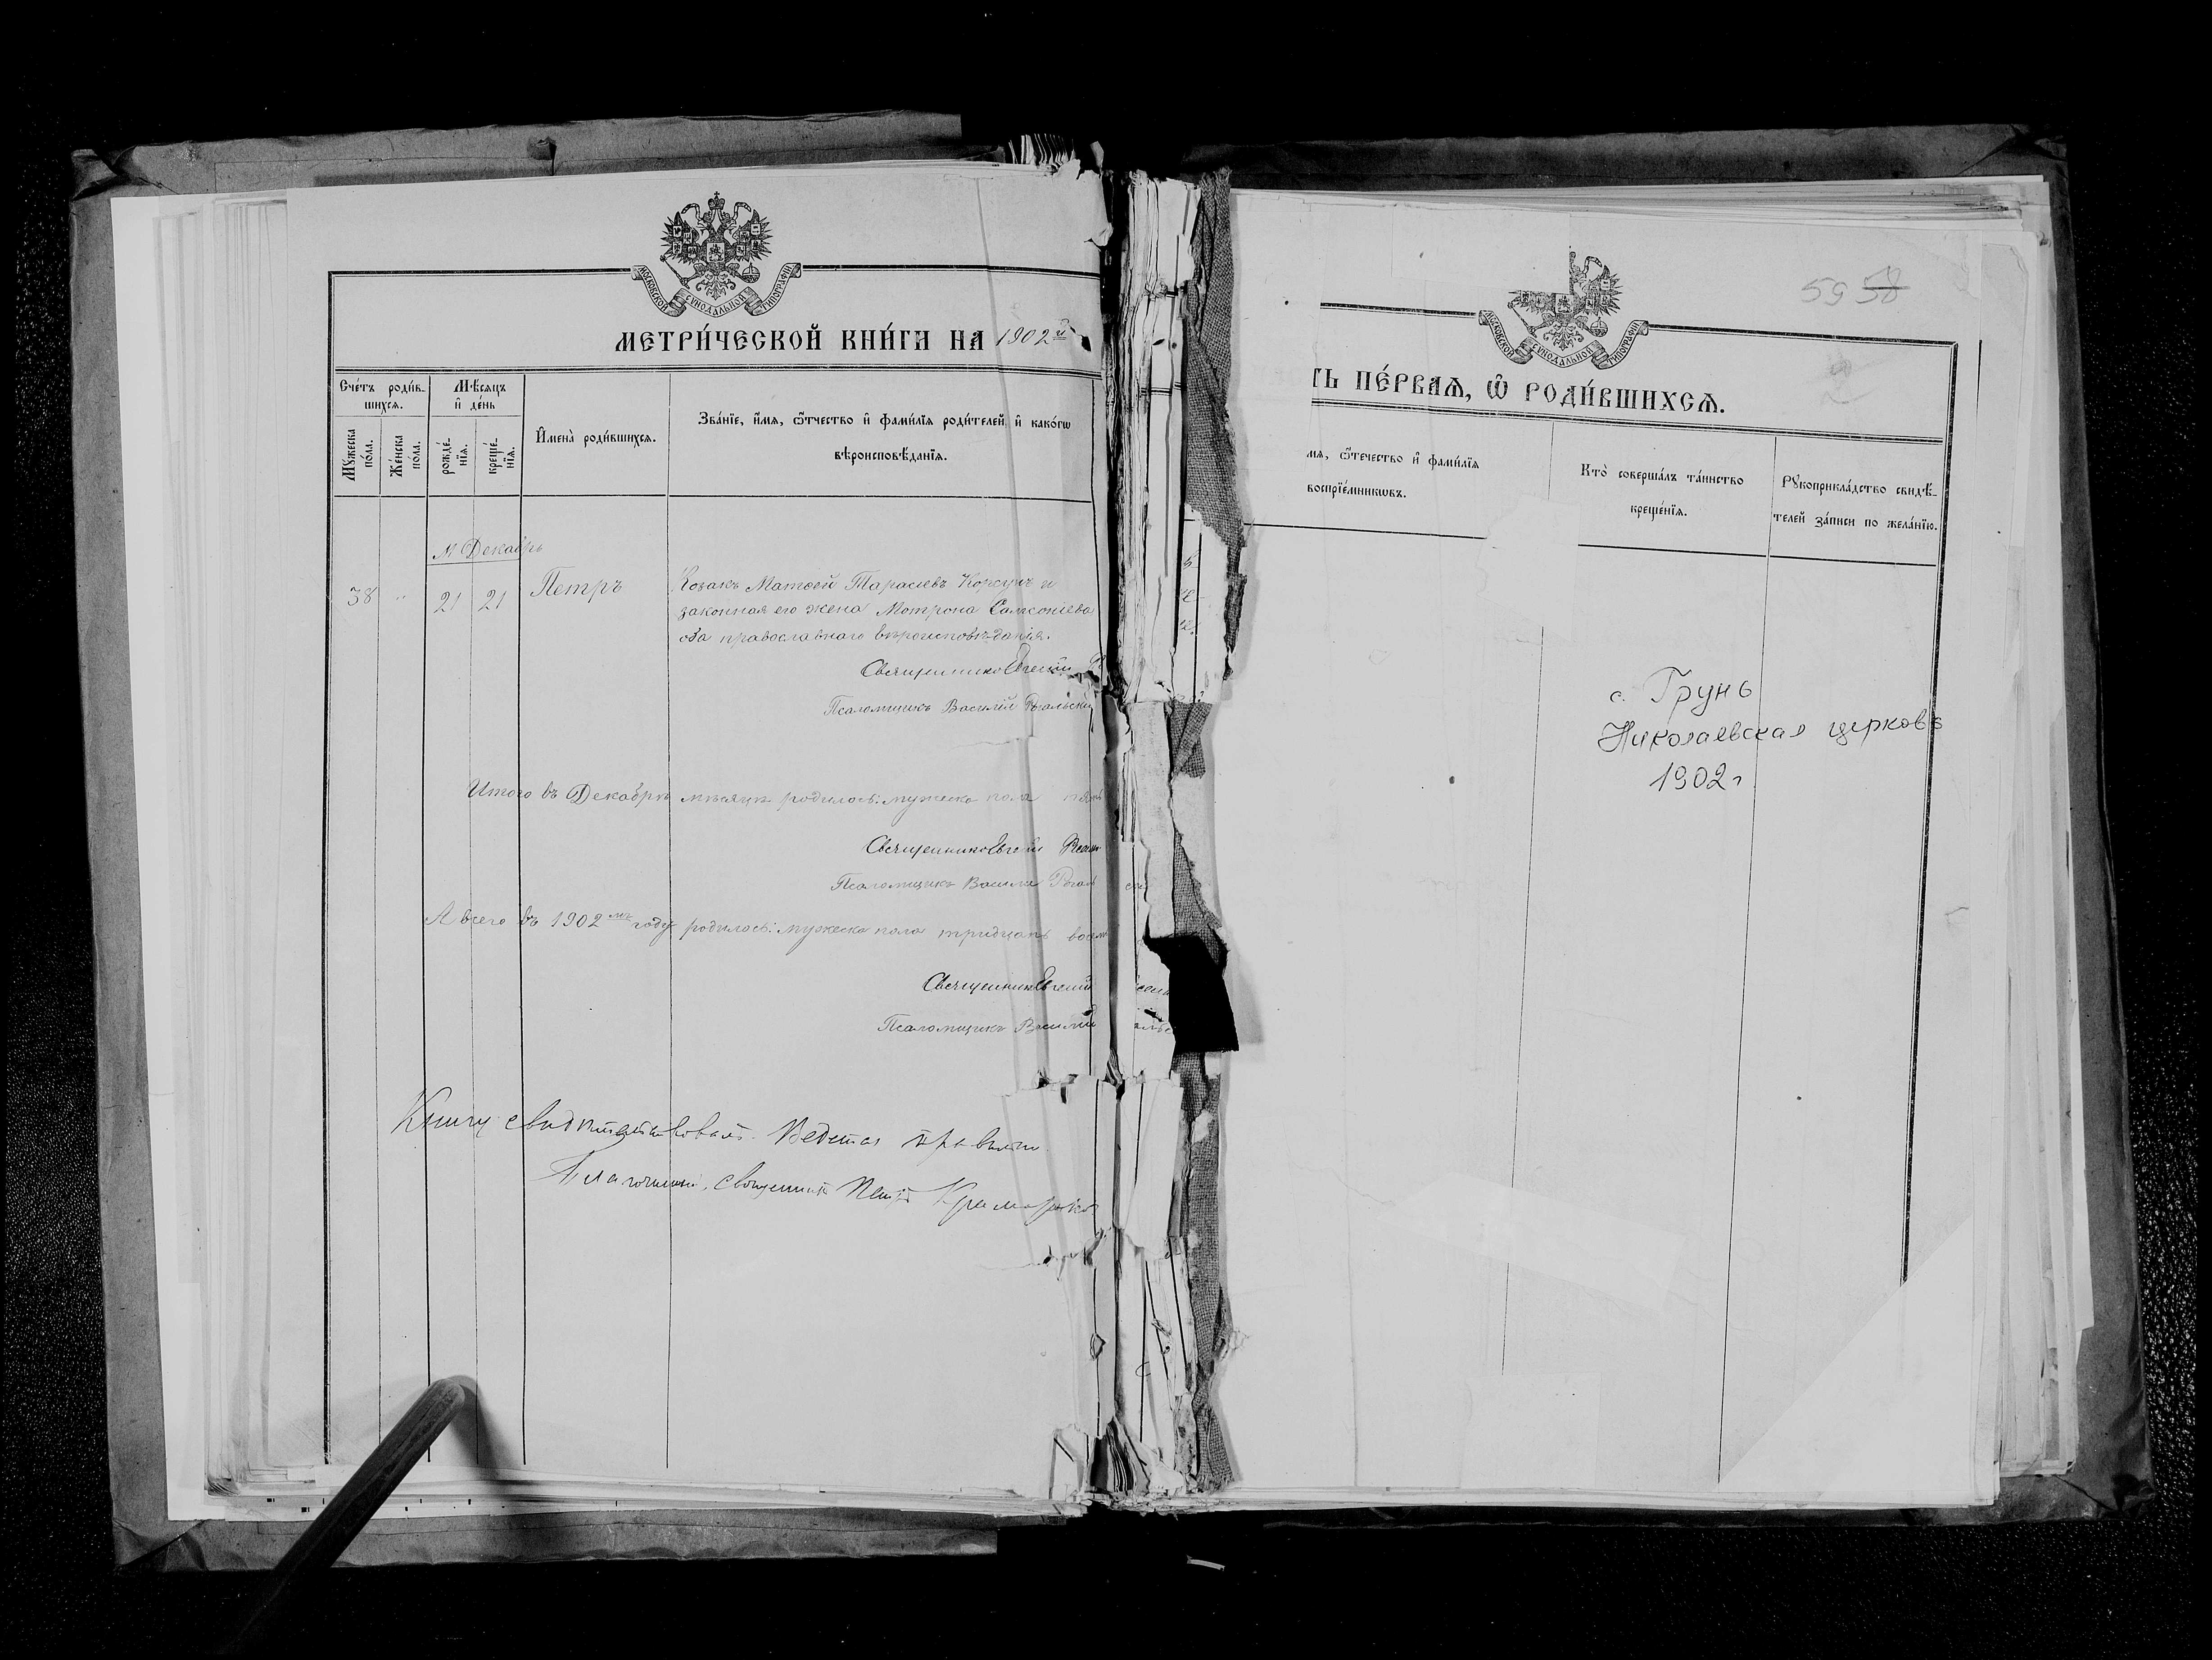 МОСКОВСКОЙ СѴНОДАЛЬНОЙ ТИПОГРАФІИ
МЕТРИ́ЧЕСКОЙ КНИ́ГИ НА 1902й
Сче́тъ роди́в-
шихсѧ.
Мѣ́сяцъ
и҆ де́нь
Мꙋ́жеска
по́ла.
Же́нска
по́ла.
рожде́-
нїѧ.
креще́-
нїѧ.
И҆мена̀ роди́вшихсѧ.
Зва́нїе, и҆́мѧ, ѻ҆́тчество и҆ фами́лїѧ роди́телей, и҆ како́гѡ
вѣроисповѣ́данїѧ.
М. Декабрь
38 " 21 21 Петръ Козакъ Матѳей Тарасіевъ Корсунъ и
законная его жена Мотрона Сампсоніева
оба православнаго вѣроисповѣданія.
Священникъ Евгеній
Псаломщикъ Василій Рогальскій
Итого въ Декабрѣ мѣсяцѣ родилось: мужеска пола
Священникъ Евгеній
Псаломщикъ Василій
А всего въ 1902мъ году родилось: мужеска пола тридцать восемь
Священникъ Евгеній
Псаломщикъ Василій
Книгу свидѣтельствовалъ. Ведется правильно.
Благочинный, священникъ Петръ
59 58
МОСКОВСКОЙ СѴНОДАЛЬНОЙ ТИПОГРАФІИ
ТЬ ПЕ́РВАѦ, Ѡ҆ РОДИ́ВШИХСѦ.
мѧ, ѻ҆́течество и҆ фами́лїѧ
воспрїе́мникѡвъ.
Кто̀ соверша́лъ та́инство
креще́нїѧ.
Рꙋкоприкла́дство свидѣ́-
телей за́писи по жела́нїю.
с. Грунь
Николаевская церковь
1902г